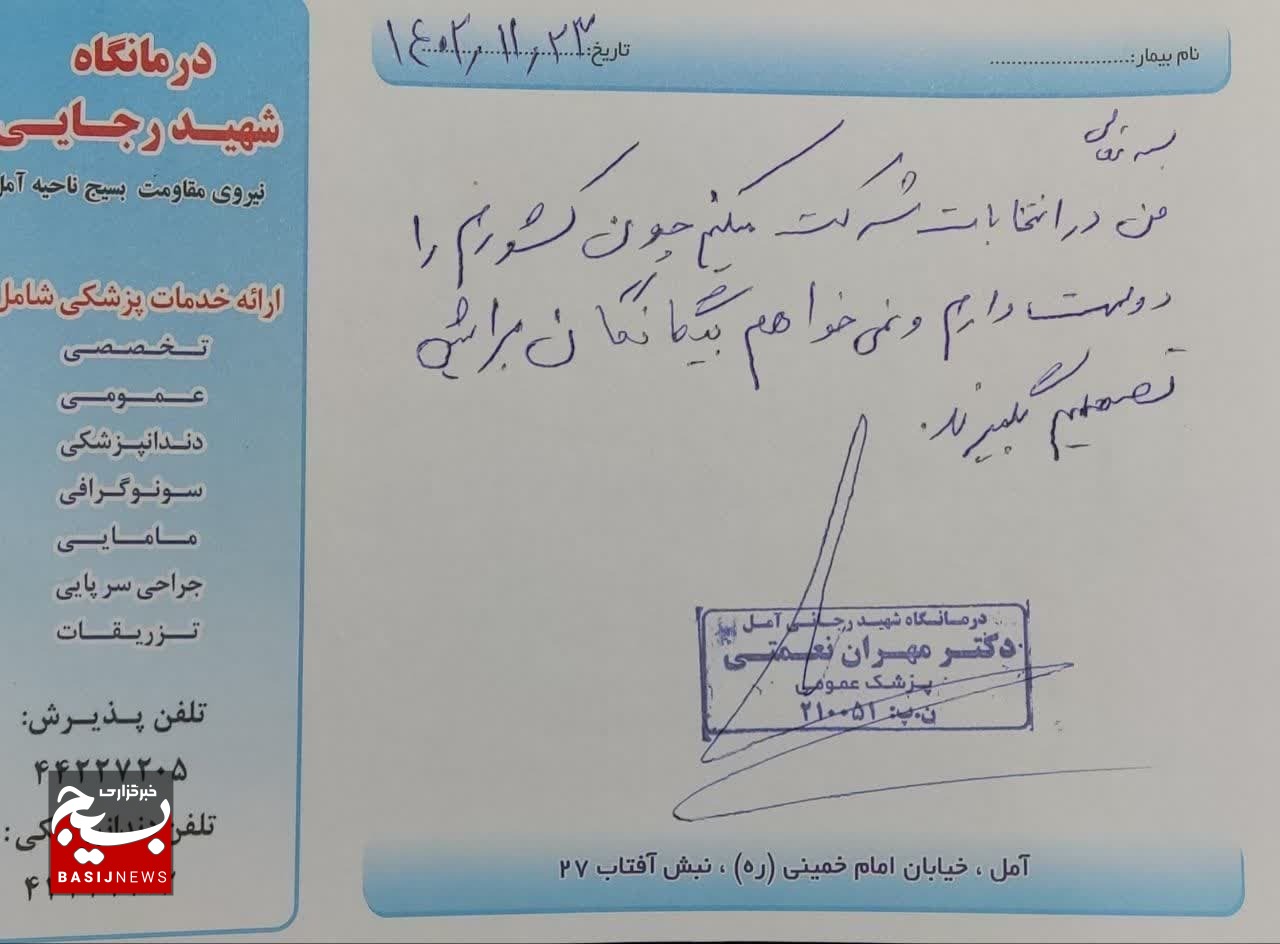 درمانگاه
شهید رجایی
نیروی مقاومت بسیج ناحیه آمل
ارائه خدمات پزشکی شامل
تخصصی
عمومی
دندانپزشکی
سونوگرافی
مامایی
جراحی سرپایی
تزریقات
تلفن پذیرش:
۴۴۲۲۷۲۰۵
تلفن
خبرگزاری
بسیج
BASIJNEWS
نام بیمار:
تاریخ: ۱۴۰۲,۱۱,۲۳
بسمه تعالی
من در انتخابات شرکت میکنم چون کشورم را
دوست دارم و نمی خواهم بیگانگان برایش
تصمیم بگیرند.
درمانگاه شهید رجائی آمل
دکتر مهران نعمتی
پزشک عمومی
ن.پ: ۲۱۰۰۵۱
آمل ، خیابان امام خمینی (ره) ، نبش آفتاب ۲۷